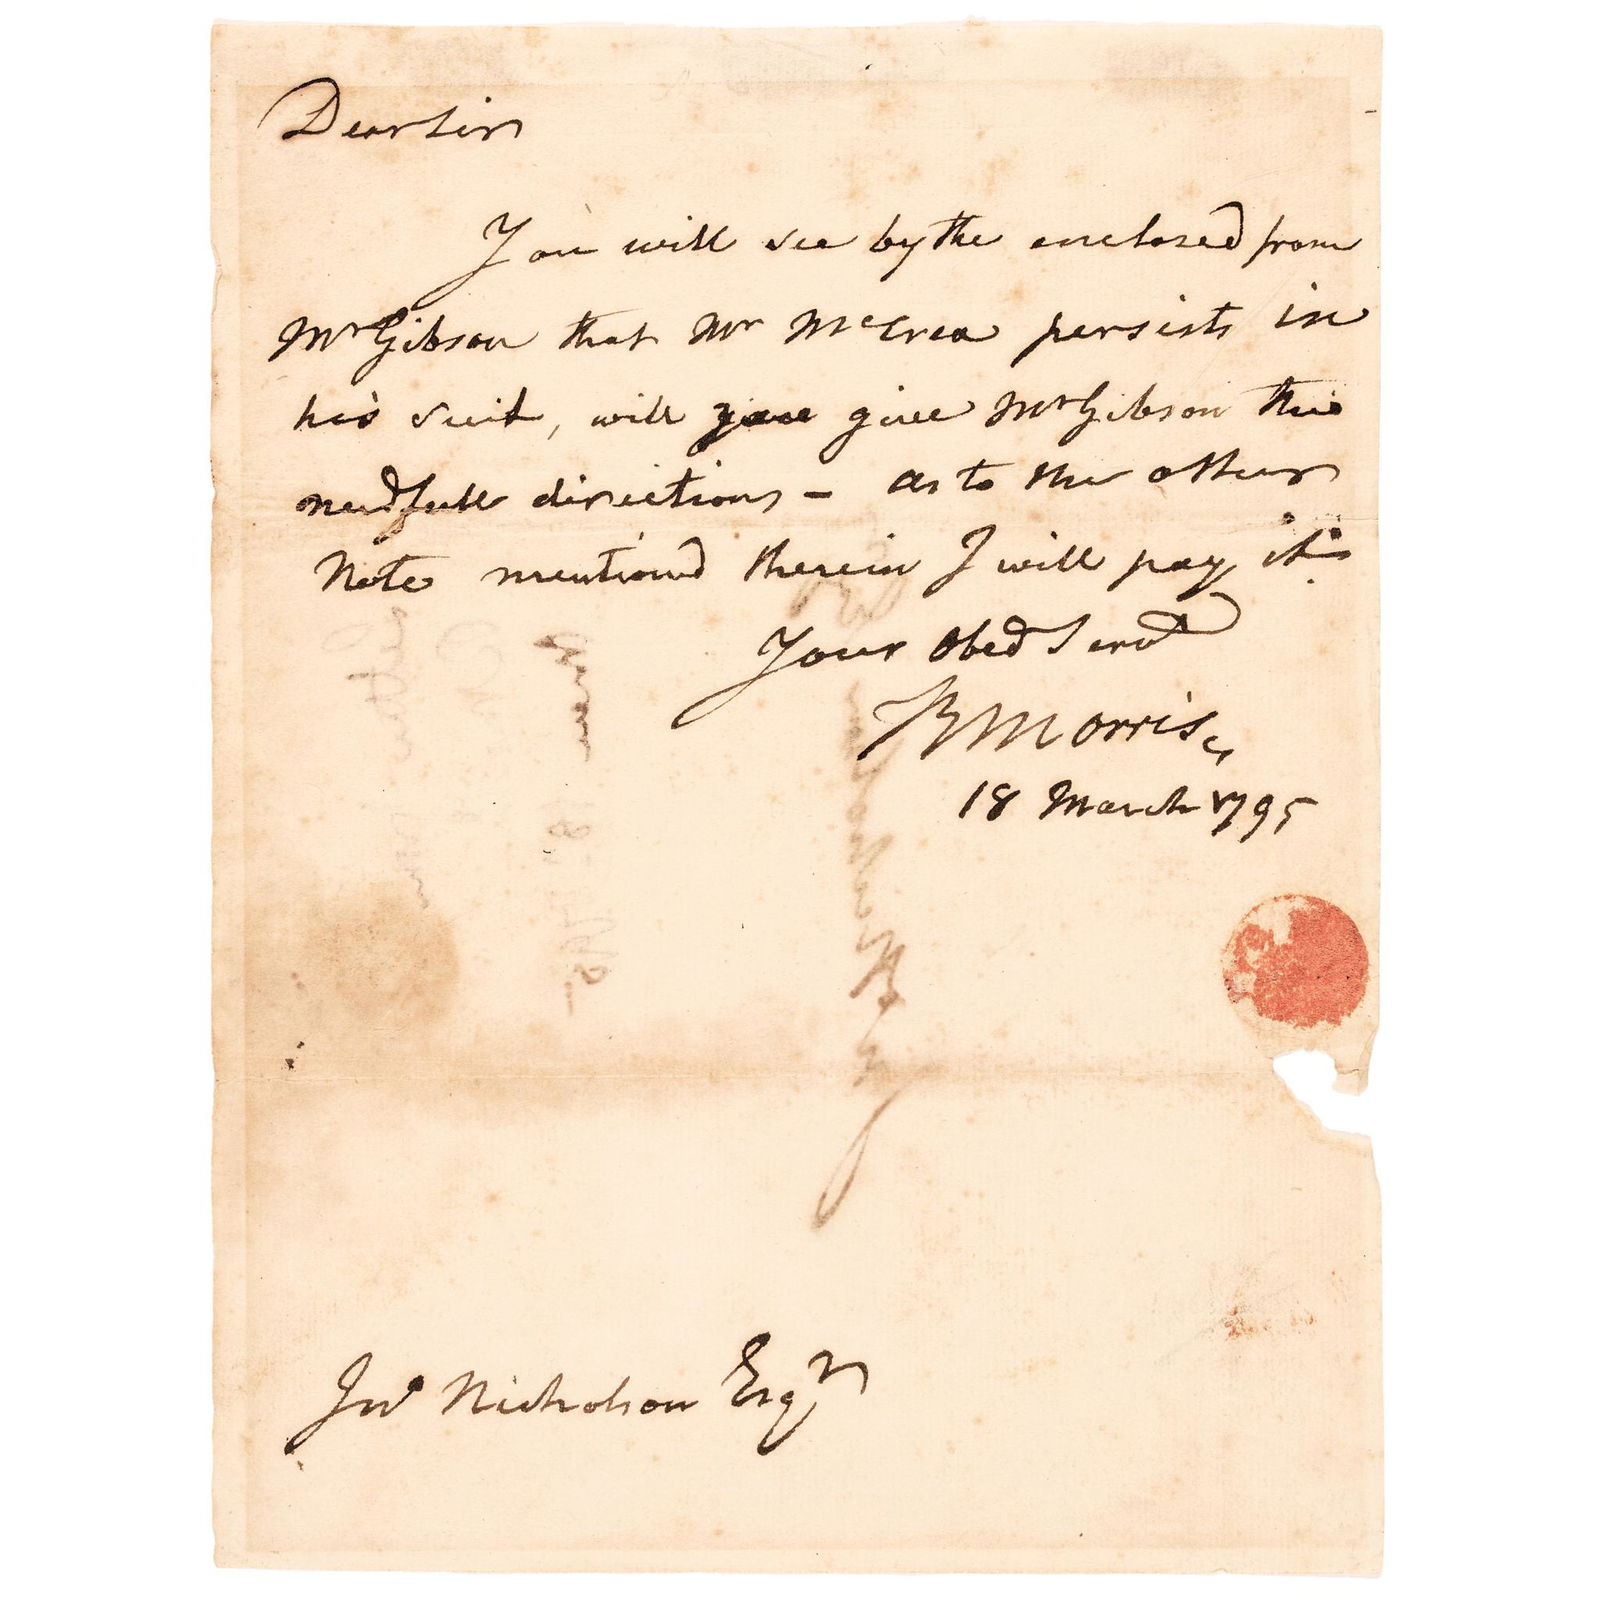 Dear Sir
You will see by the enclosed from
Mr Gibson that Mr McCrea persists in
his suit, will you give Mr Gibson the
needfull directions - as to the other
Note mentioned therein I will pay it.
Your Obed Servt
RMorris
18 March 1795
Jno Nicholson Esqr